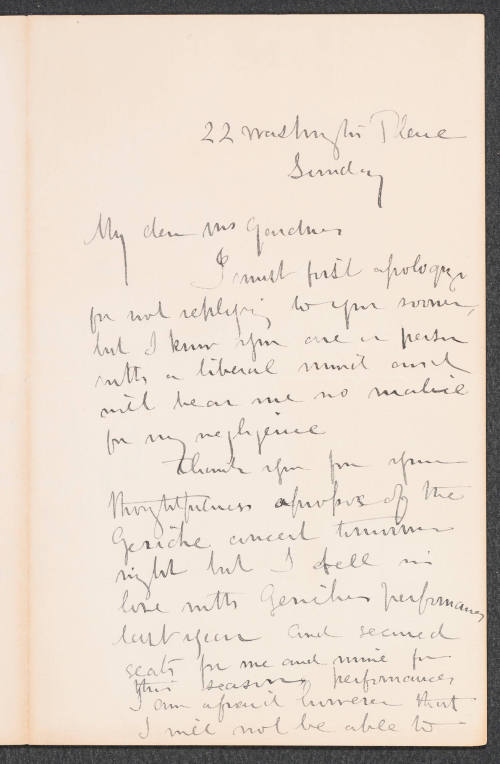 22 Washington Place
Sunday
My dear Mrs Gardner
I must first apologize
for not replying to your sooner,
but I know you are a person
with a liberal mind and
will bear me no malice
for my negligence
Thank you for your
thoughtfulness apropos of the
Gericke concert tomorrow
night but I fell in
love with Gericke's performances
last year and secured
seats for me and mine for
this seasons performances
I am afraid however that
I will not be able to